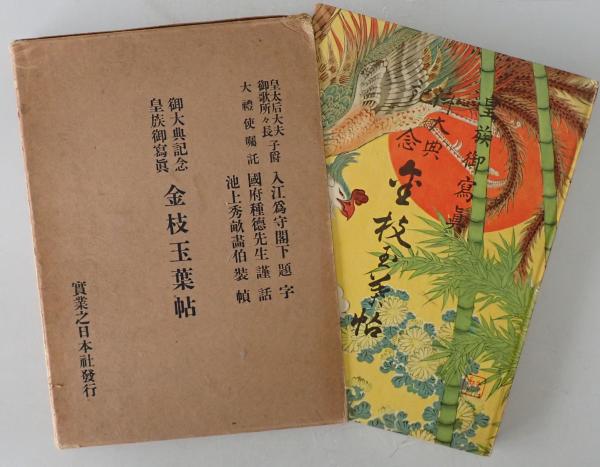 皇太后大夫
御歌所々長 子爵 入江爲守閣下題字
大禮使囑託 國府種德先生謹話
池上秀畝畵伯裝幀
御大典記念
皇族御寫眞
金枝玉葉帖
實業之日本社發行
皇族御寫眞
御大典記念
金枝玉葉帖